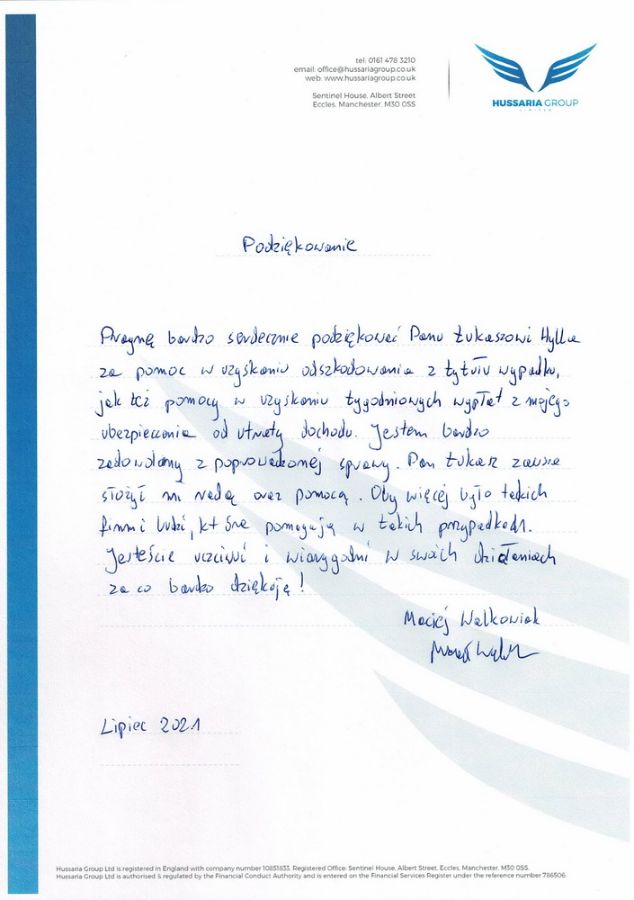 tel: 0161 478 3210
email: office@hussariagroup.co.uk
web: www.hussariagroup.co.uk
Sentinel House, Albert Street
Eccles, Manchester, M30 0SS
HUSSARIA GROUP
LIMITED
Podziękowanie
Pragnę bardzo serdecznie podziękować Panu Łukaszowi Hylla
za pomoc w uzyskaniu odszkodowania z tytułu wypadku,
jak też pomocy w uzyskaniu tygodniowych wypłat z mojego
ubezpieczenia od utraty dochodu. Jestem bardzo
zadowolony z poprowadzonej sprawy. Pan Łukasz zawsze
służył mi radą oraz pomocą. Oby więcej było takich
firm i ludzi, które pomogają w takich przypadkach.
Jesteście uczciwi i wiarygodni w swoich działaniach
za co bardzo dziękuję!
Maciej Walkowiak
Lipiec 2021
Hussaria Group Ltd is registered in England with company number 10851833. Registered Office: Sentinel House, Albert Street, Eccles, Manchester, M30 0SS.
Hussaria Group Ltd is authorised & regulated by the Financial Conduct Authority and is entered on the Financial Services Register under the reference number 786506.